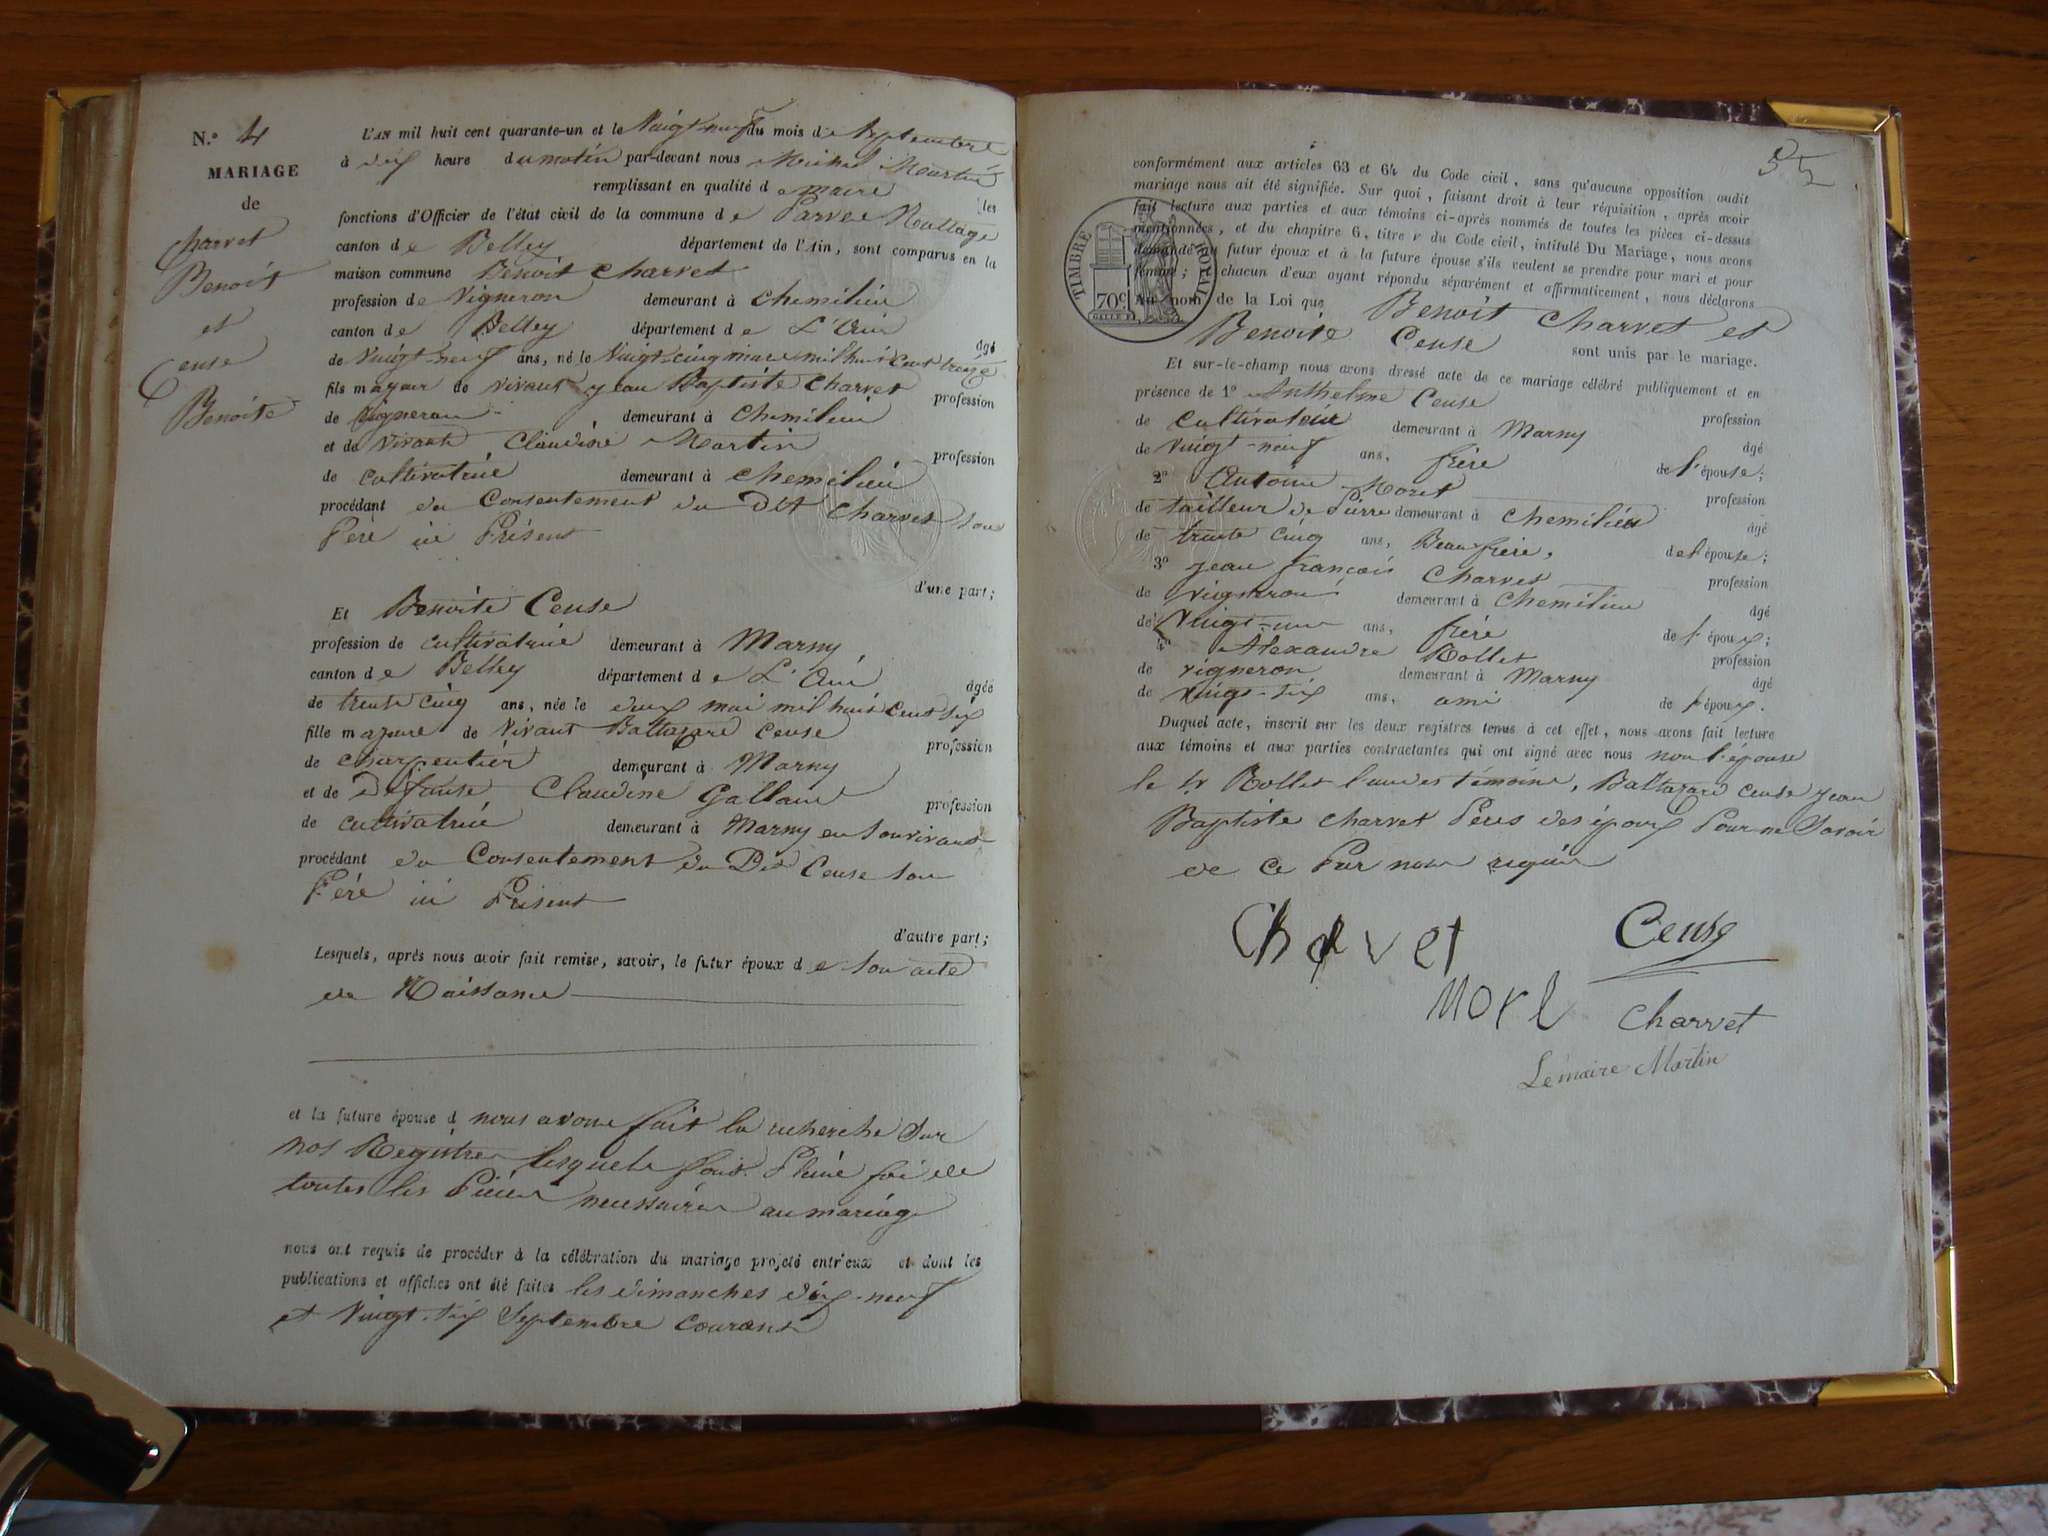 N.º 4
MARIAGE
de
Charvet
Benoit
et
Ceuse
Benoite
L'AN mil huit cent quarante-un et le Vingt-neuf du mois de Septembre
à dix heure du matin par-devant nous Michel Martin
remplissant en qualité de maire les
fonctions d'Officier de l'état civil de la commune de Parves Nattage
canton de Belley département de l'Ain, sont comparus en la
maison commune Benoit Charvet
profession de Vigneron demeurant à Chemilieu
canton de Belley département de L'Ain
âgé
de Vingt-neuf ans, né le Vingt-cinq mars mil huit cent treize
fils majeur de vivant jean Baptiste Charvet
profession
de Vigneron demeurant à Chemilieu
et de Vivante Claudine Martin
profession
de cultivatrice demeurant à Chemilieu
procédant du Consentement du Dit Charvet son
Père ici Présent
d'une part;
Et Benoite Ceuse
profession de cultivatrice demeurant à Marny
canton de Belley département de L'Ain
âgée
de trente cinq ans, née le deux mai mil huit cent six
fille majeure de Vivant Baltazard Ceuse
profession
de charpentier demeurant à Marny
et de Défunte Claudine Galland
profession
de cultivatrice demeurant à Marny en son vivant
procédant du Consentement du Dit Ceuse son
Père ici Présent
d'autre part;
Lesquels, après nous avoir fait remise, savoir, le futur époux de son acte
de Naissance
et la future épouse d nous avons fait la recherche sur
nos Registres lesquels font Pleine foi de
toutes les Pièces necessaires au mariage
nous ont requis de procéder à la célébration du mariage projeté entr'eux et dont les
publications et affiches ont été faites les dimanches dix-neuf
et Vingt-six Septembre courant
55
conformément aux articles 63 et 64 du Code civil, sans qu'aucune opposition audit
mariage nous ait été signifiée. Sur quoi, faisant droit à leur réquisition, après avoir
fait lecture aux parties et aux témoins ci-après nommés de toutes les pièces ci-dessus
mentionnées, et du chapitre 6, titre v du Code civil, intitulé Du Mariage, nous avons
demandé au futur époux et à la future épouse s'ils veulent se prendre pour mari et pour
femme; chacun d'eux ayant répondu séparément et affirmativement, nous déclarons
Au nom de la Loi que Benoit Charvet et
Benoite Ceuse sont unis par le mariage.
TIMBRE ROYAL
70c
Et sur-le-champ nous avons dressé acte de ce mariage célébré publiquement et en
présence de 1º Anthelme Ceuse
profession
de cultivateur demeurant à Marny
âgé
de vingt-neuf ans, frère de l'épouse;
2º Antoine Morel
profession
de tailleur de Pierre demeurant à Chemilieu
âgé
de trente cinq ans, Beau frère, de l'épouse;
3º jean françois Charvet
profession
de vigneron demeurant à Chemilieu
âgé
de Vingt-un ans, frère de l'époux;
4º Alexandre Rollet
profession
de vigneron demeurant à Marny
âgé
de vingt-six ans, ami de l'époux.
Duquel acte, inscrit sur les deux registres tenus à cet effet, nous avons fait lecture
aux témoins et aux parties contractantes qui ont signé avec nous non l'épouse
le Sr Rollet l'un des témoins, Baltazard Ceuse jean
Baptiste Charvet Pères des époux Pour ne Savoir
de ce Par nous requis
Charvet Ceuse
Morel Charvet
Lemaire Martin